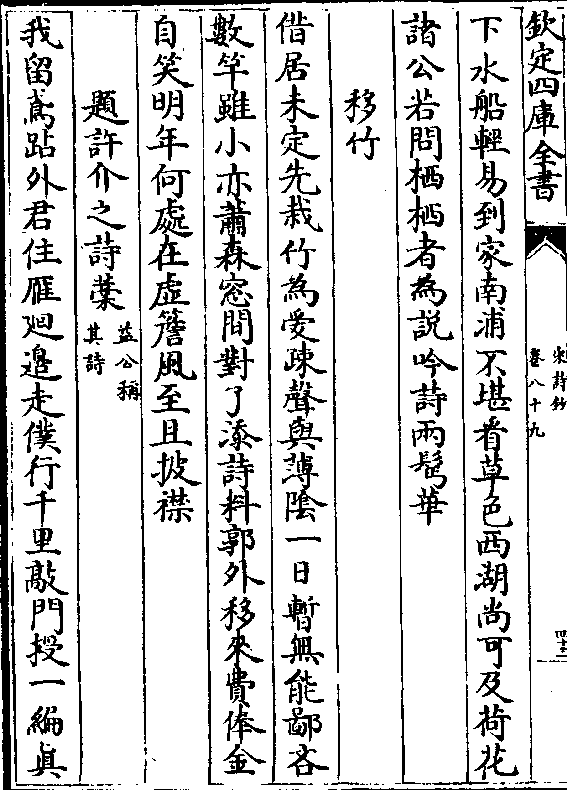 欽定四庫全書
宋詩鈔
卷八十九
四十三
下水船輕易到家南浦不堪看草色西湖尚可及荷花
諸公若問栖栖者為說吟詩兩鬂華
移竹
借居未定先栽竹為愛疎聲與薄隂一日暫無能鄙吝
數竿雖小亦蕭森窓間對了添詩料郭外移來費俸金
自笑明年何處在虚簷風至且披襟
題許介之詩藁
益公稱
其詩
我留鳶跕外君住雁廻邉走僕行千里敲門授一編真